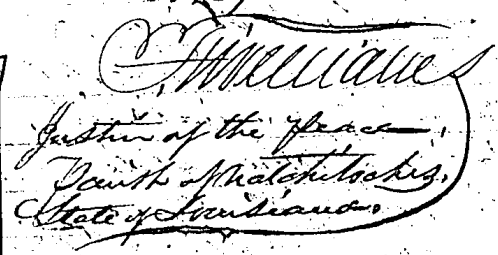 Williams
Justice of the Peace.
Parish of Natchitoches.
State of Louisiana.